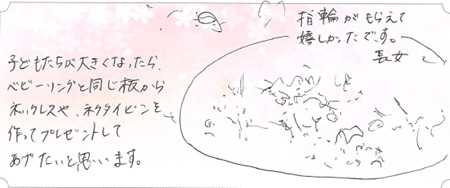 指輪がもらえて
嬉しかったです。
長女
子どもたちが大きくなったら、
ベビーリングと同じ板から
ネックレスや、ネクタイピンを
作ってプレゼントして
あげたいと思います。